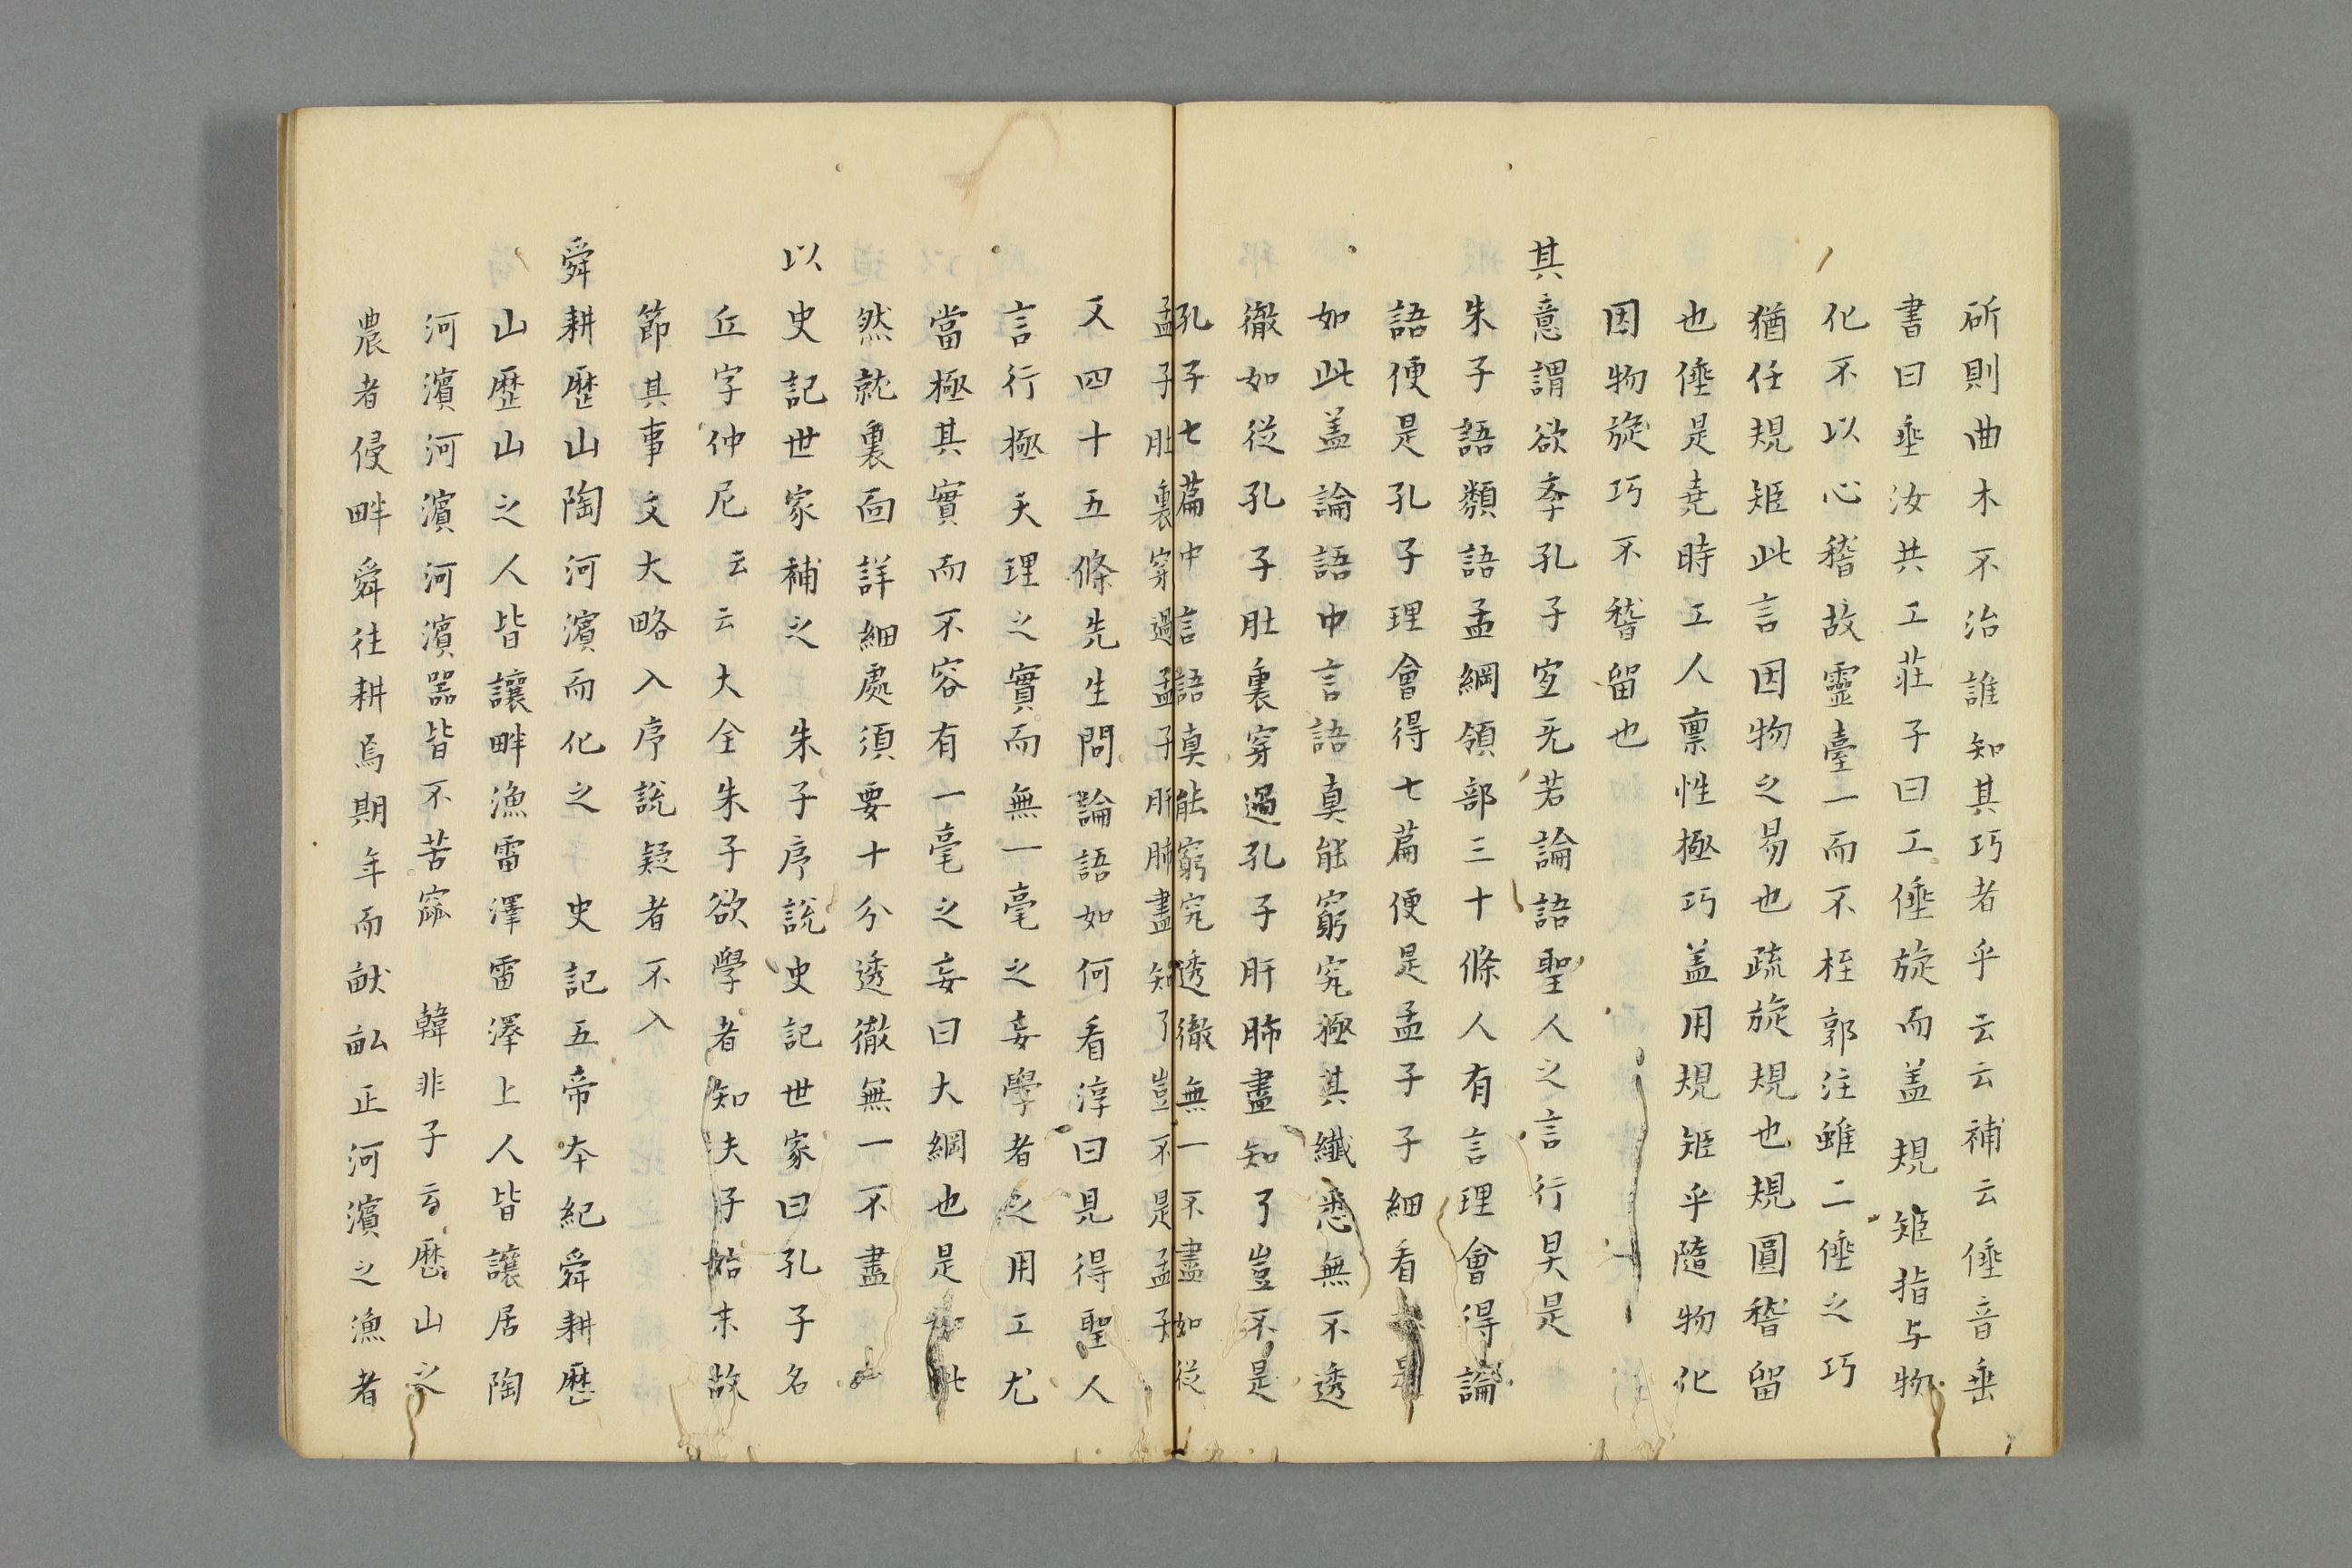 斫則曲木不治誰知其巧者乎云云補云倕音垂
書曰垂汝共工莊子曰工倕旋而盖規矩指与物
化不以心稽故靈臺一而不桎郭注雖二倕之巧
猶任規矩此言因物之易也疏旋規也規圓稽留
也倕是堯時工人禀性極巧盖用規矩乎隨物化
因物旋巧不稽留也
其意謂欲孝孔子宜无若論語聖人之言行昊是
朱子語類語孟綱領部三十條人有言理會得論
語便是孔子理會得七篇便是孟子子細看是
如此盖論語中言語真能窮究極其纖悉無不透
徹如從孔子肚裏穿過孔子肝肺盡知了豈不是
孔子七篇中言語真能窮究透徹無一不盡如從
孟子肚裏穿過孟子肝肺盡知了豈不是孟子
又四十五條先生問論語如何看淳曰見得聖人
言行極天理之實而無一毫之妄學者之用工尤
當極其實而不容有一毫之妄曰大綱也是如此
然就裏面詳細處須要十分透徹無一不盡
以史記世家補之 朱子序說史記世家曰孔子名
丘字仲尼云云大全朱子欲學者知夫子始末故
節其事文大略入序說疑者不入
舜耕歷山陶河濱而化之 史記五帝本紀舜耕歷
山歷山之人皆讓畔漁雷澤雷澤上人皆讓居陶
河濱河濱河濱器皆不苦窳 韓非子云歷山之
農者侵畔舜往耕焉期年而畎畝正河濱之漁者